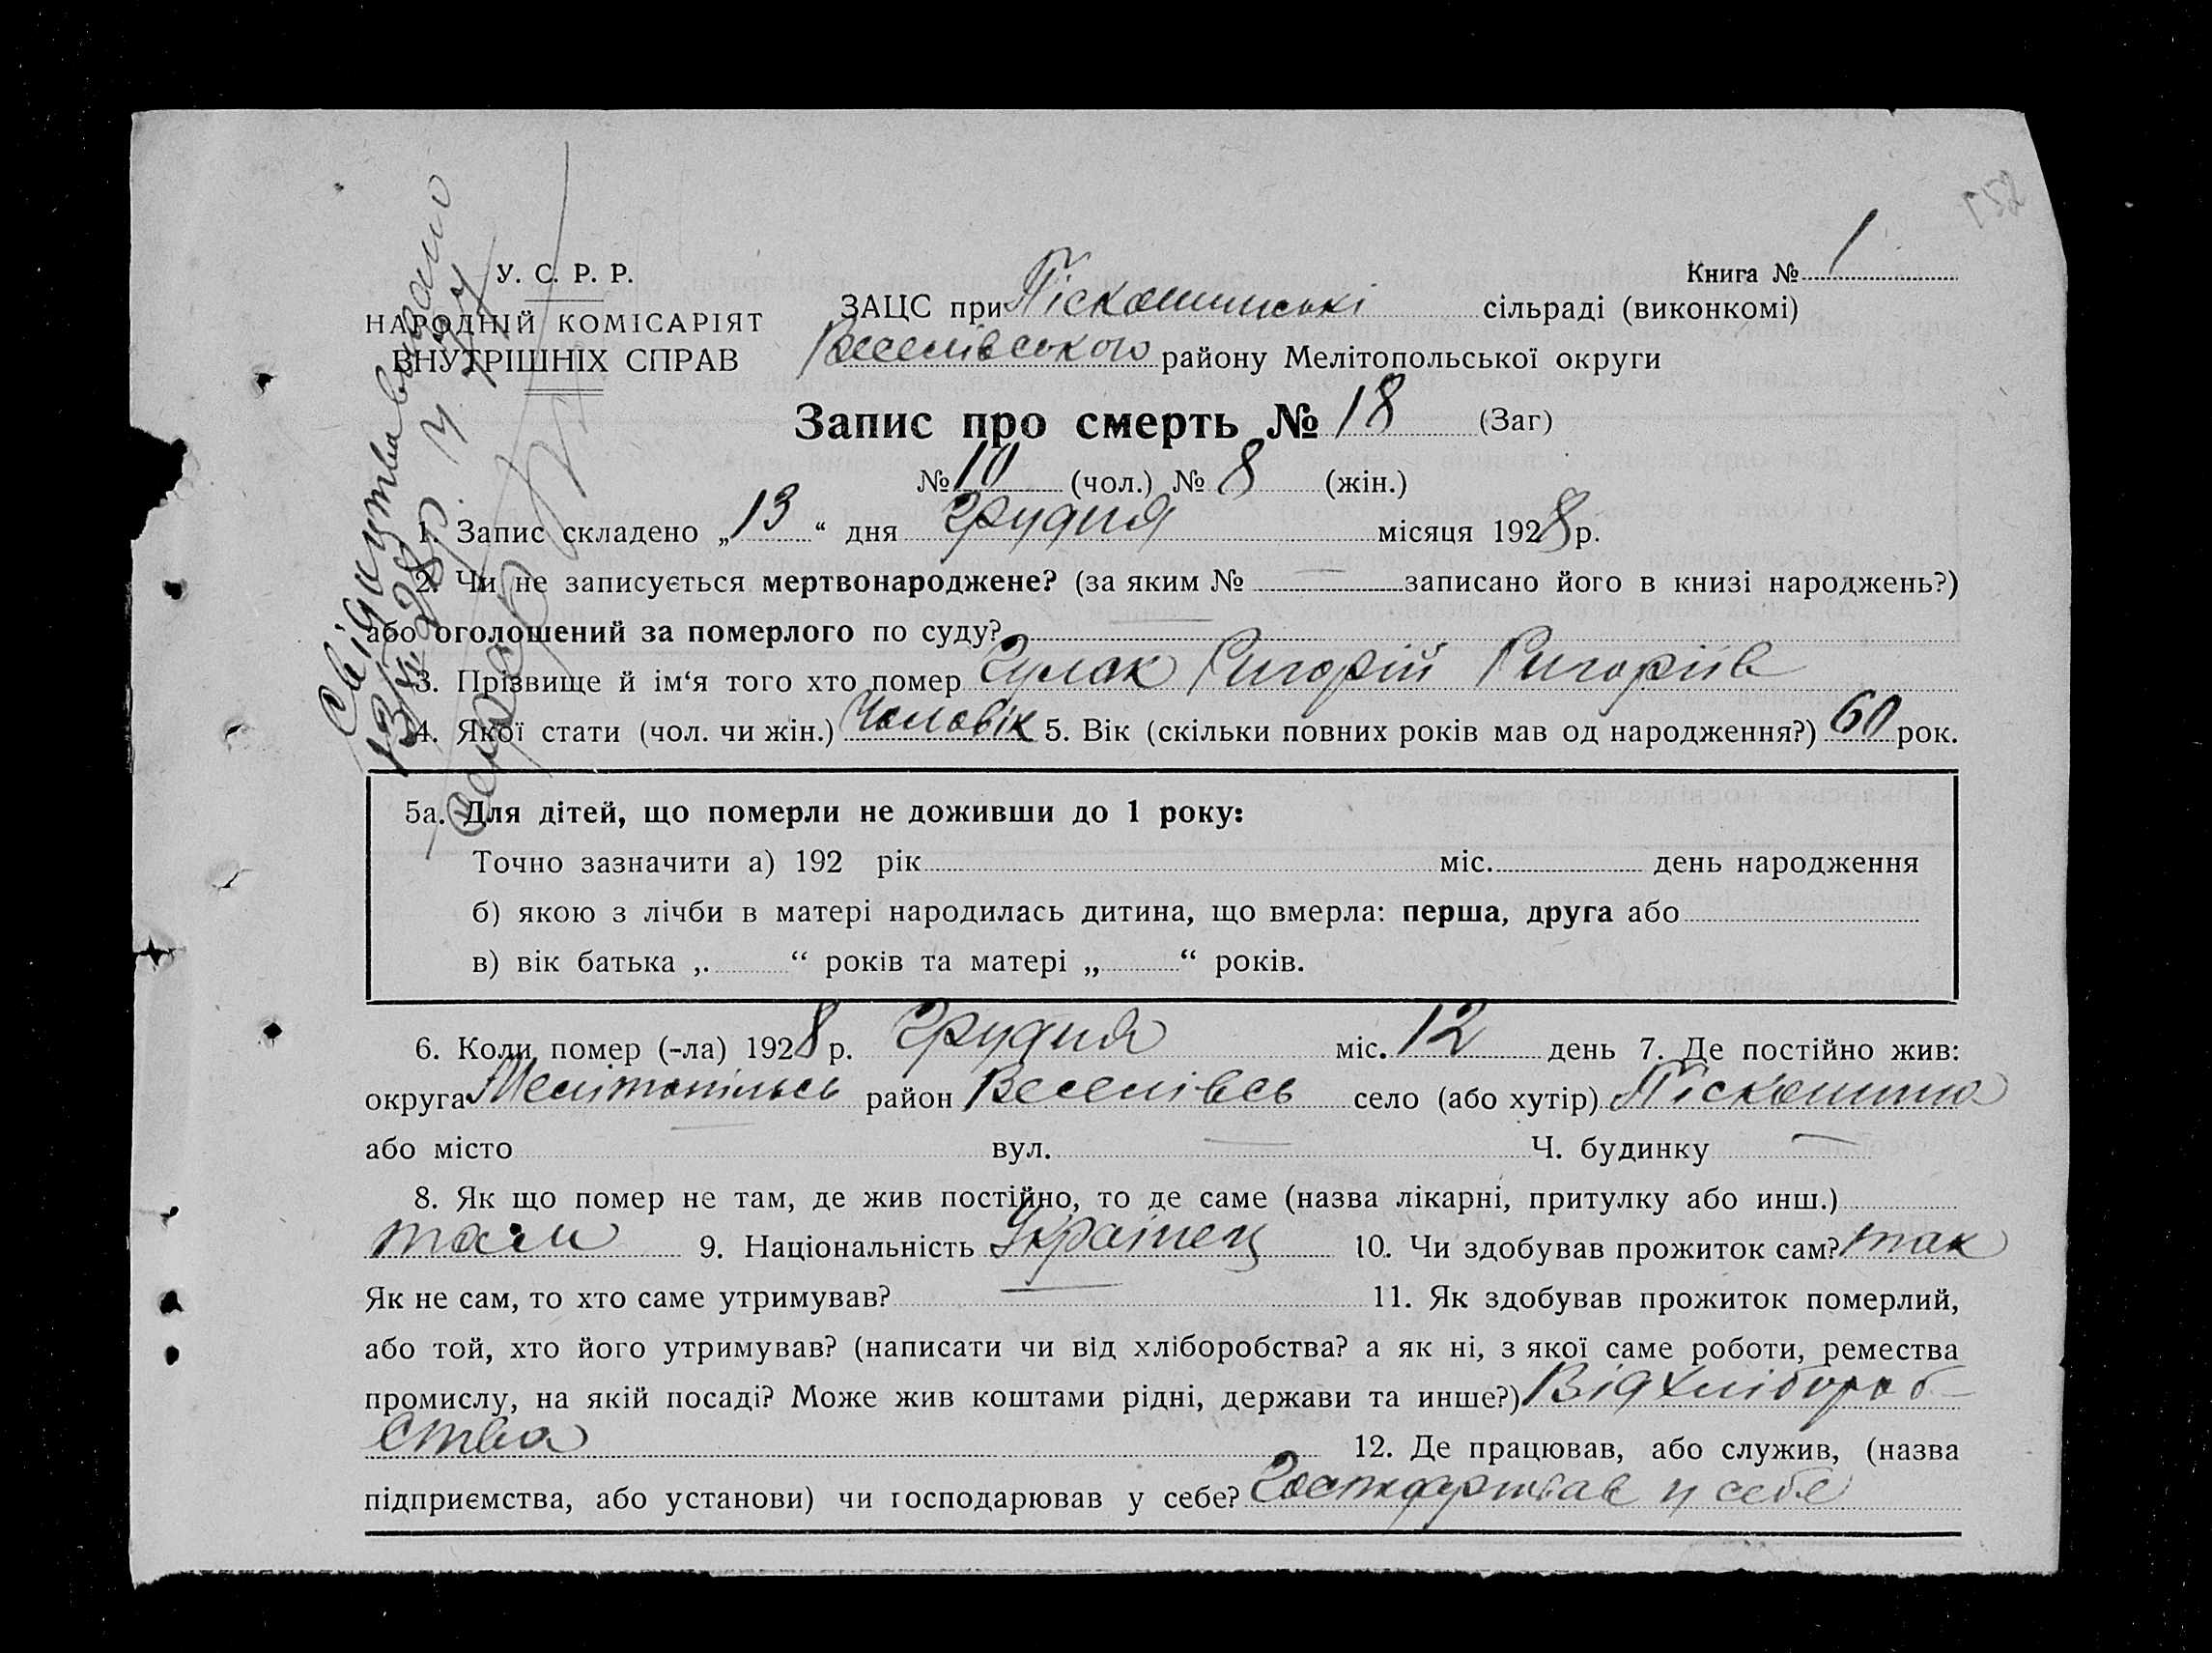 У. С. Р. Р.
НАРОДНІЙ КОМІСАРІЯТ
ВНУТРІШНІХ СПРАВ
Книга № 1
ЗАЦС при Піскошинські сільраді (виконкомі)
Веселівського району Мелітопольської округи
Запис про смерть № 18 (Заг)
№ 10 (чол.) № 8 (жін.)
Свідоцтва видано
13/XII 28р. № 44
1. Запис складено „13“ дня грудня місяця 1928р.
2. Чи не записується мертвонароджене? (за яким № — записано його в книзі народжень?)
або оголошений за померлого по суду? —
3. Прізвище й ім'я того хто помер Гулак Григорій Григоріїв
4. Якої стати (чол. чи жін.) Чоловік 5. Вік (скільки повних років мав од народження?) 60 рок.
5а. Для дітей, що померли не доживши до 1 року:
Точно зазначити а) 192 рік міс. день народження
б) якою з лічби в матері народилась дитина, що вмерла: перша, друга або
в) вік батька „ “ років та матері „ “ років.
6. Коли помер (-ла) 1928 р. грудня міс. 12 день 7. Де постійно жив:
округа Мелітопільсь район Веселівсь село (або хутір) Піскошино
або місто — вул. — Ч. будинку —
8. Як що помер не там, де жив постійно, то де саме (назва лікарні, притулку або инш.)
там 9. Національність Українец 10. Чи здобував прожиток сам? так
Як не сам, то хто саме утримував? — 11. Як здобував прожиток померлий,
або той, хто його утримував? (написати чи від хліборобства? а як ні, з якої саме роботи, ремества
промислу, на якій посаді? Може жив коштами рідні, держави та инше?) Від хлібороб-
ства 12. Де працював, або служив, (назва
підприємства, або установи) чи господарював у себе? у себе